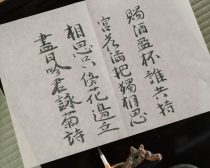 賜酒盈杯誰共持
宮花滿把獨相思
相思只傍花邊立
盡日吟君詠菊詩